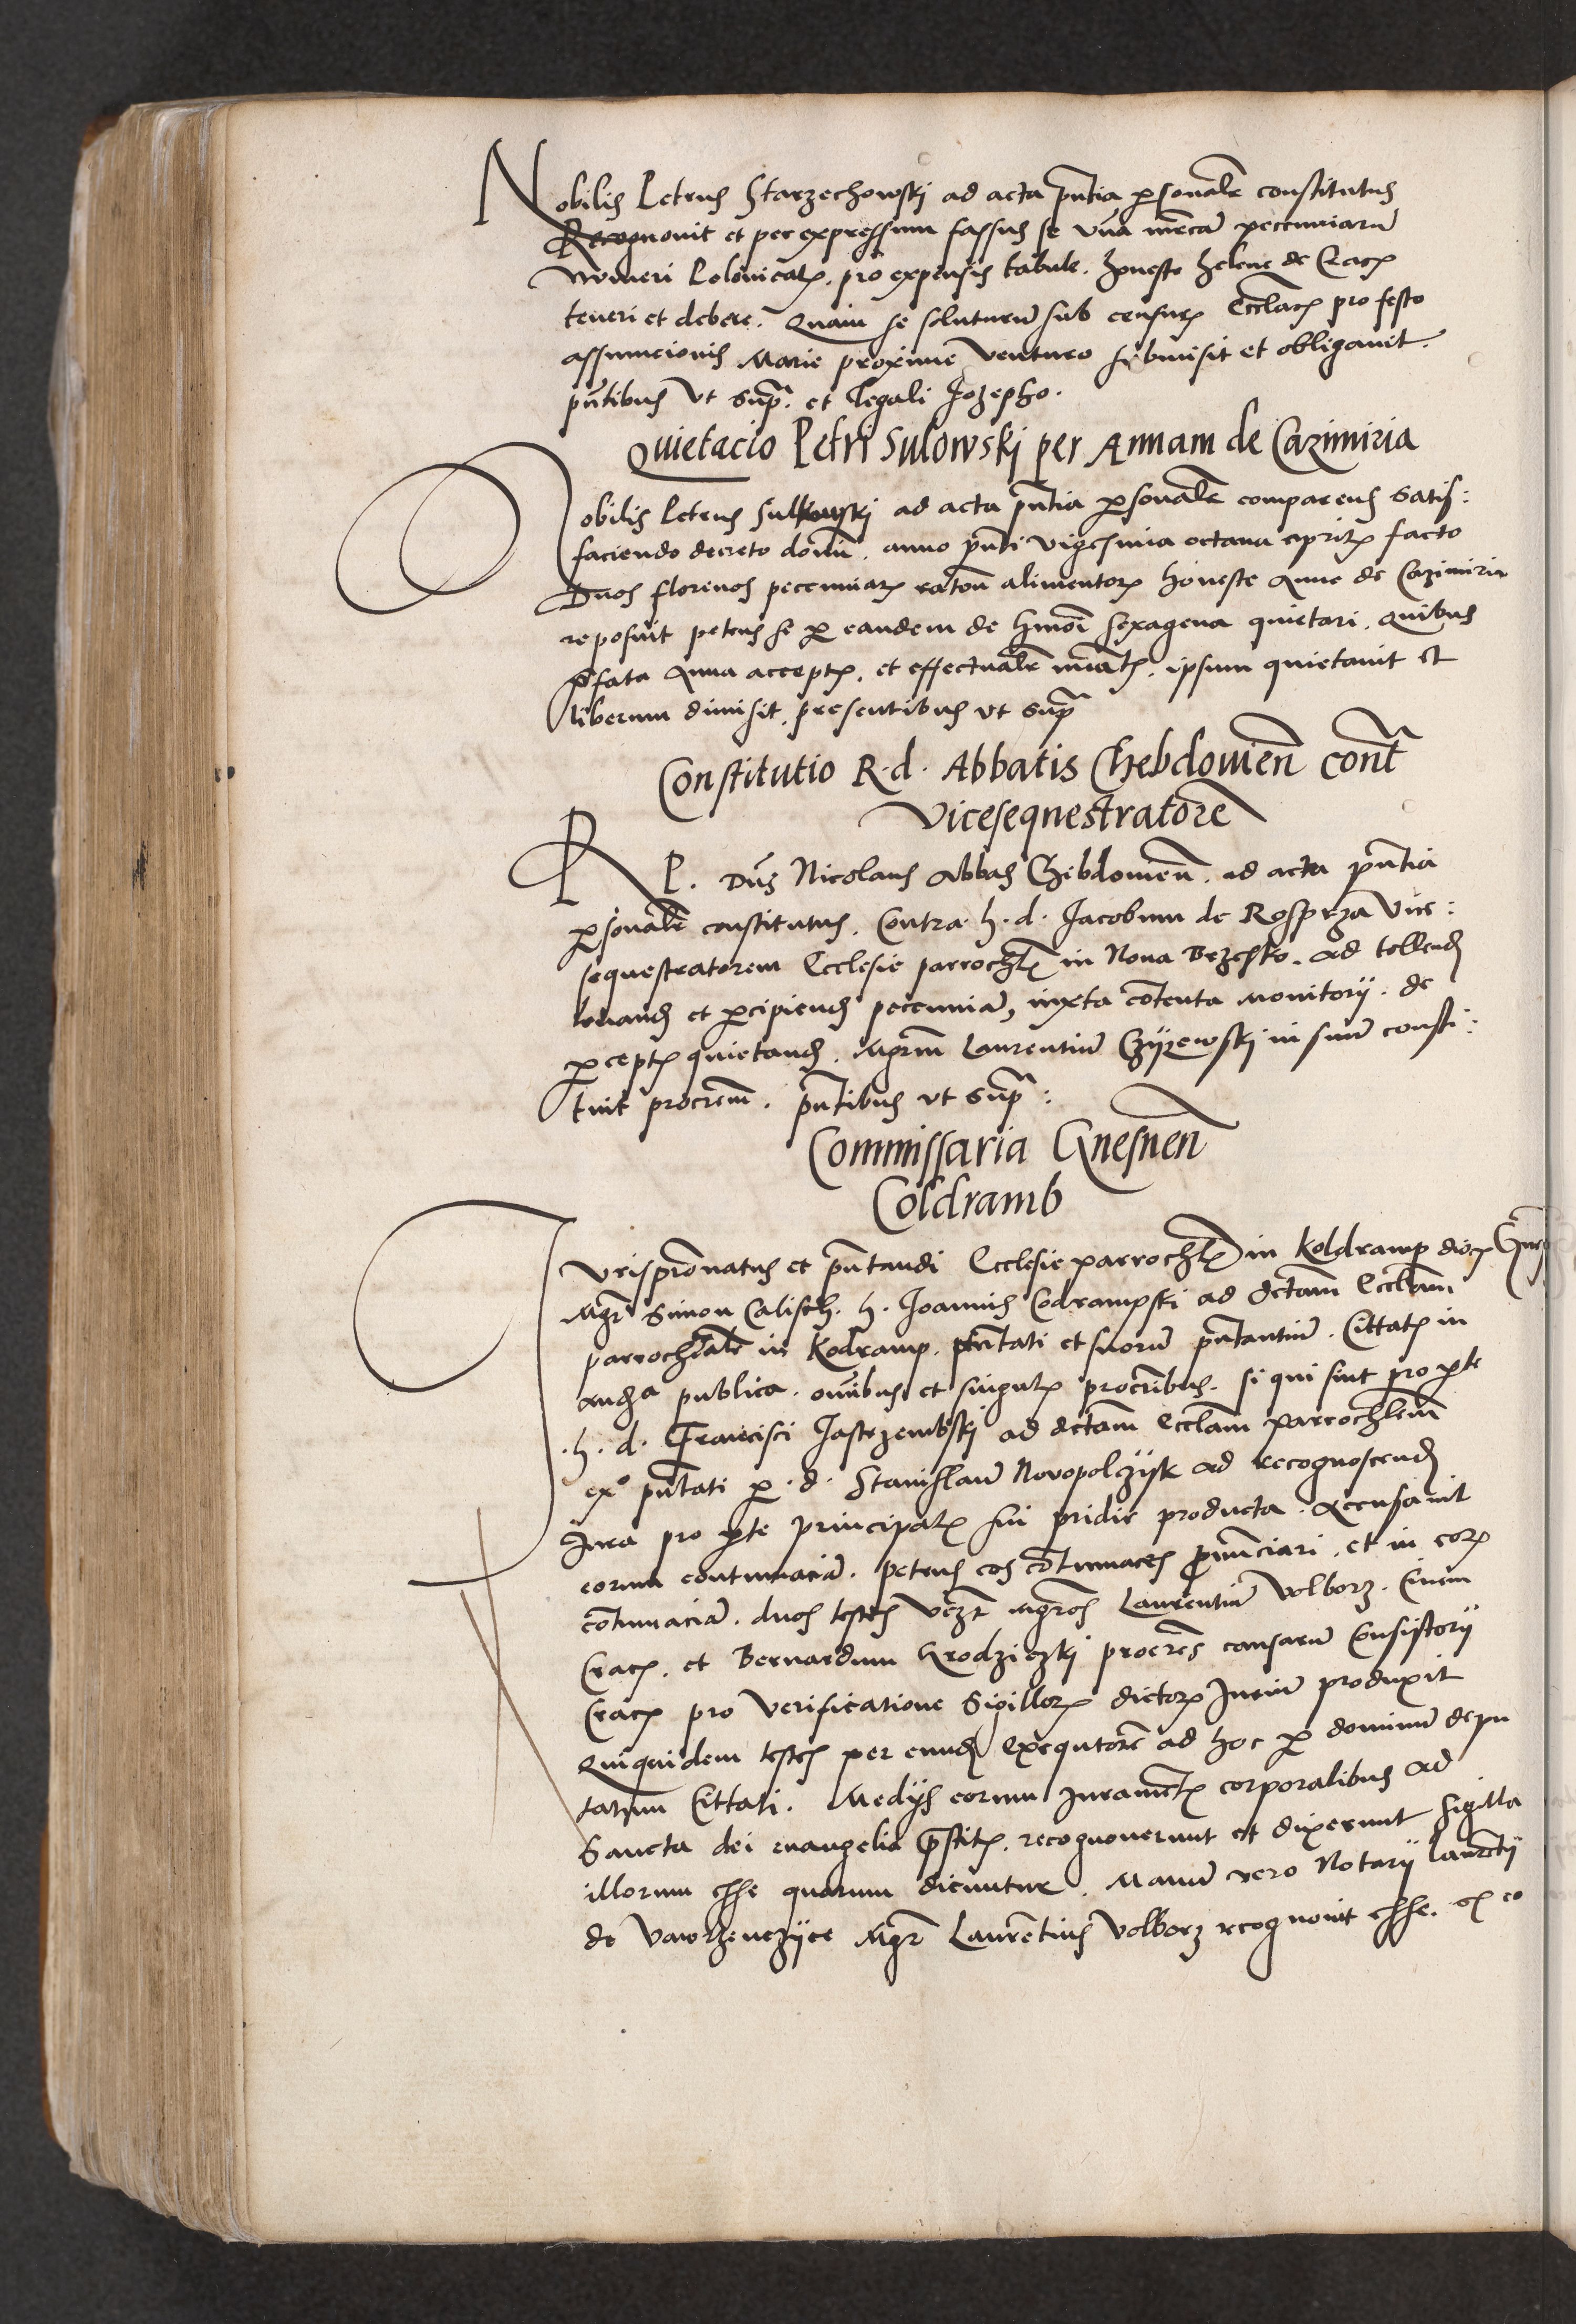 Nobilis Petrus Starzechowskj ad acta pñtia p̱sonalr̃ constitutus
Recognouit et per expressum fassus se vña mr̃cã pecuniarũ
Numeri Polonicalꝭ. pro expensis tabule. honeste helene de Cracꝭ
teneri et debere. Quam se soluturũ sub censurꝭ Eccl̃acꝭ pro festo
assumcionis Marie proxime venturo submisit et obligauit.
pñtibus vt Sup̃. et legali Jozepho.
Quietacio Petri Sulowskj per Annam de Cazimiria
Nobilis Petrus Sulkowskj ad acta pñtia p̱sonalr̃ comparens satis:
faciendo decreto domĩ. anno pñti vigesima octaua aprilꝭ facto
Duos florenos pecuniarꝭ ratoñ alimentorꝭ honeste Anne de Cazimiria
reposuit petens se p̱ eandem de hmõi sexagena quietari. Quibus
p̃fata Anna acceptꝭ. et effectualr̃ nũatꝭ. ipsum quietauit et
liberum dimisit, presentibus vt Sup̃
Constitutio R. d. Abbatis Chebdouieñ cont̃
Vicesequestratorẽ
R P. Dñs Nicolaus Abbas Chebdouieñ. ad acta pñtia
p̱sonalr̃ constitutus. Contra h. d. Jacobum de Rosprza Vice:
sequestratorem Ecclesie parrochlꝭ in Noua Brzesko. ad tollend̃
leuand̃ et p̱cipiend̃ pecuniã, iuxta cõtenta Monitorij. de
p̱ceptꝭ quietand̃. Mgrm̃ Laurentiũ Czijzewskj in suũ consti:
tuit procrem̃. pñtibus vt Sup̃:
Commissaria Gnesneñ
Coldramb
Jurispr̃onatus et pñtandi Ecclesie parrochlꝭ in Koldramp diocꝭ Gnes
Mgr̃ Simon Calisch. h. Joannis Codrampski ad dctam̃ Eccl̃am
parrochialẽ in Kodramp. pñtati et suorũ pñtantiũ. Cittatꝭ in
audᵃ publica. oĩbus et singulꝭ procribus̃. si qui sint pro p̱te
.h. d. Francisci Jastrzembskj ad dctam̃ Eccl̃am parrochlem̃
exº pñtati p̱ .d. Stanislaũ Nouopolczijk ad recognoscend̃
Jura pro p̱te principalꝭ sui pridie producta. Accusauit
eorum contumaciã. petens eos cõtumaces p̃nũciari. et in eorꝭ
cõtumaciã. duos testes vĩzꝭ Mgros̃ Laurentiũ Volborz. Ciuem
Cracꝭ. et Bernardum Grodziczkj procres̃ causarũ Consistorij
Cracꝭ pro verificatione Sigillorꝭ dictorꝭ Juriũ produxit
Quiquidem testes per eund̃ Exequtorẽ ad hoc p̱ dominũ depu
tatum Cittati. Medijs eorum Juramẽtꝭ corporalibus ad
Sancta dei euangelia p̃stitꝭ. recognouerunt et dixerunt Sigilla
illorum esse quorum dicuntur. Manũ vero Notarij Laurẽtij
de Vawrzenczijce Mgr̃ Laurẽtius Volborz recognouit esse. ex eo